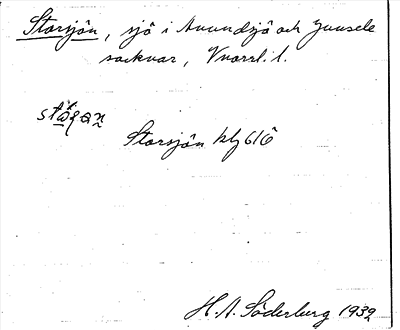 Storsjön, sjö i Anundsjö och Junsele
socknar, Vnorrl. l.
Storsjön kbl 616
H. A. Söderberg 1932